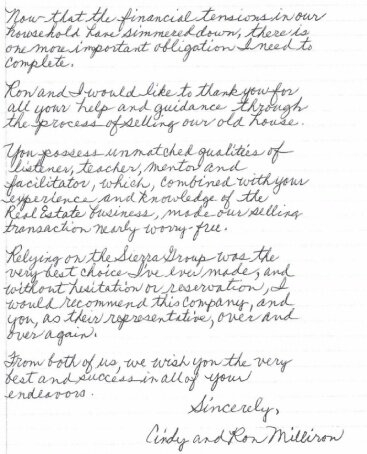 Now that the financial tensions in our
household have simmered down, there is
one more important obligation I need to
complete.
Ron and I would like to thank you for
all your help and guidance through
the process of selling our old house.
You possess unmatched qualities of
listener, teacher, mentor and
facilitator, which, combined with your
experience and knowledge of the
Real Estate business, made our selling
transaction nearly worry-free.
Relying on the Sierra Group was the
very best choice I've ever made, and
without hesitation or reservation, I
would recommend this company, and
you, as their representative, over and
over again.
From both of us, we wish you the very
best and success in all of your
endeavors.
Sincerely,
Cindy and Ron Milliron